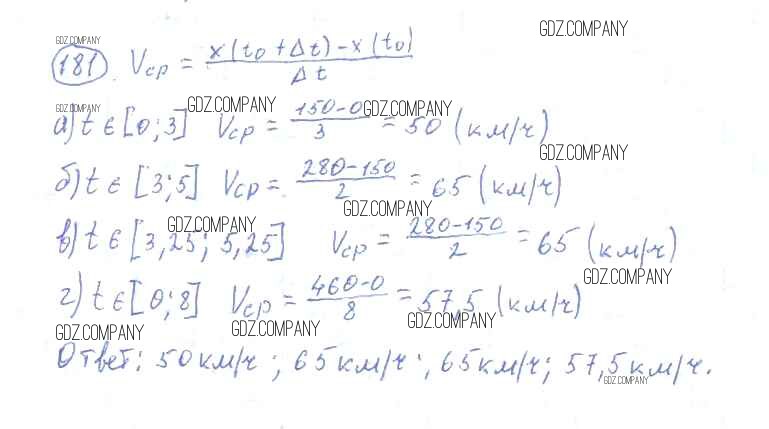 GDZ.COMPANY
GDZ.COMPANY
181 Vср = x(t0 + Δt) – x(t0) / Δt
GDZ.COMPANY GDZ.COMPANY GDZ.COMPANY
а) t ∈ [0; 3] Vср = 150–0 / 3 = 50 (км/ч)
GDZ.COMPANY
б) t ∈ [3; 5] Vср = 280–150 / 2 = 65 (км/ч)
GDZ.COMPANY
GDZ.COMPANY
в) t ∈ [3,25; 5,25] Vср = 280–150 / 2 = 65 (км/ч)
GDZ.COMPANY
г) t ∈ [0; 8] Vср = 460–0 / 8 = 57,5 (км/ч)
GDZ.COMPANY GDZ.COMPANY GDZ.COMPANY
Ответ: 50 км/ч; 65 км/ч; 65 км/ч; 57,5 км/ч.
GDZ.COMPANY